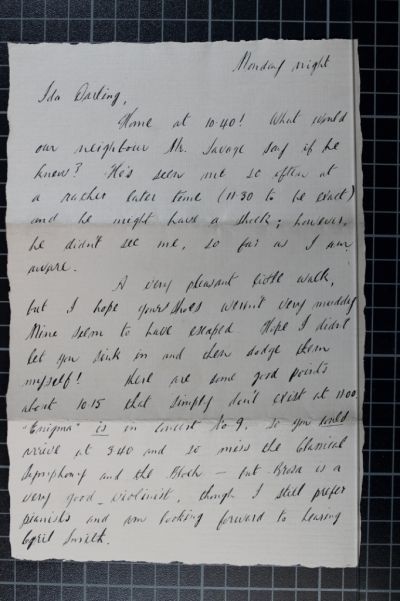 Monday night
Ida Darling,
Home at 10.40! What would
our neighbour Mr. Savage say if he
knew? He's seen me so often at
a rather later time (11.30 to be exact)
and he might have a shock; however,
he didn't see me, so far as I am
aware.
A very pleasant little walk,
but I hope your shoes weren't very muddy
Mine seem to have escaped. Hope I didn't
let you sink in and then dodge them
myself! There are some good points
about 10.15 that simply don't exist at 11.00.
"Enigma" is in Concert No 9, so you could
arrive at 3.40 and so miss the Classical
Symphony and the Bloch — but Brosa is a
very good violinist, though I still prefer
pianists and am looking forward to hearing
Cyril Smith.